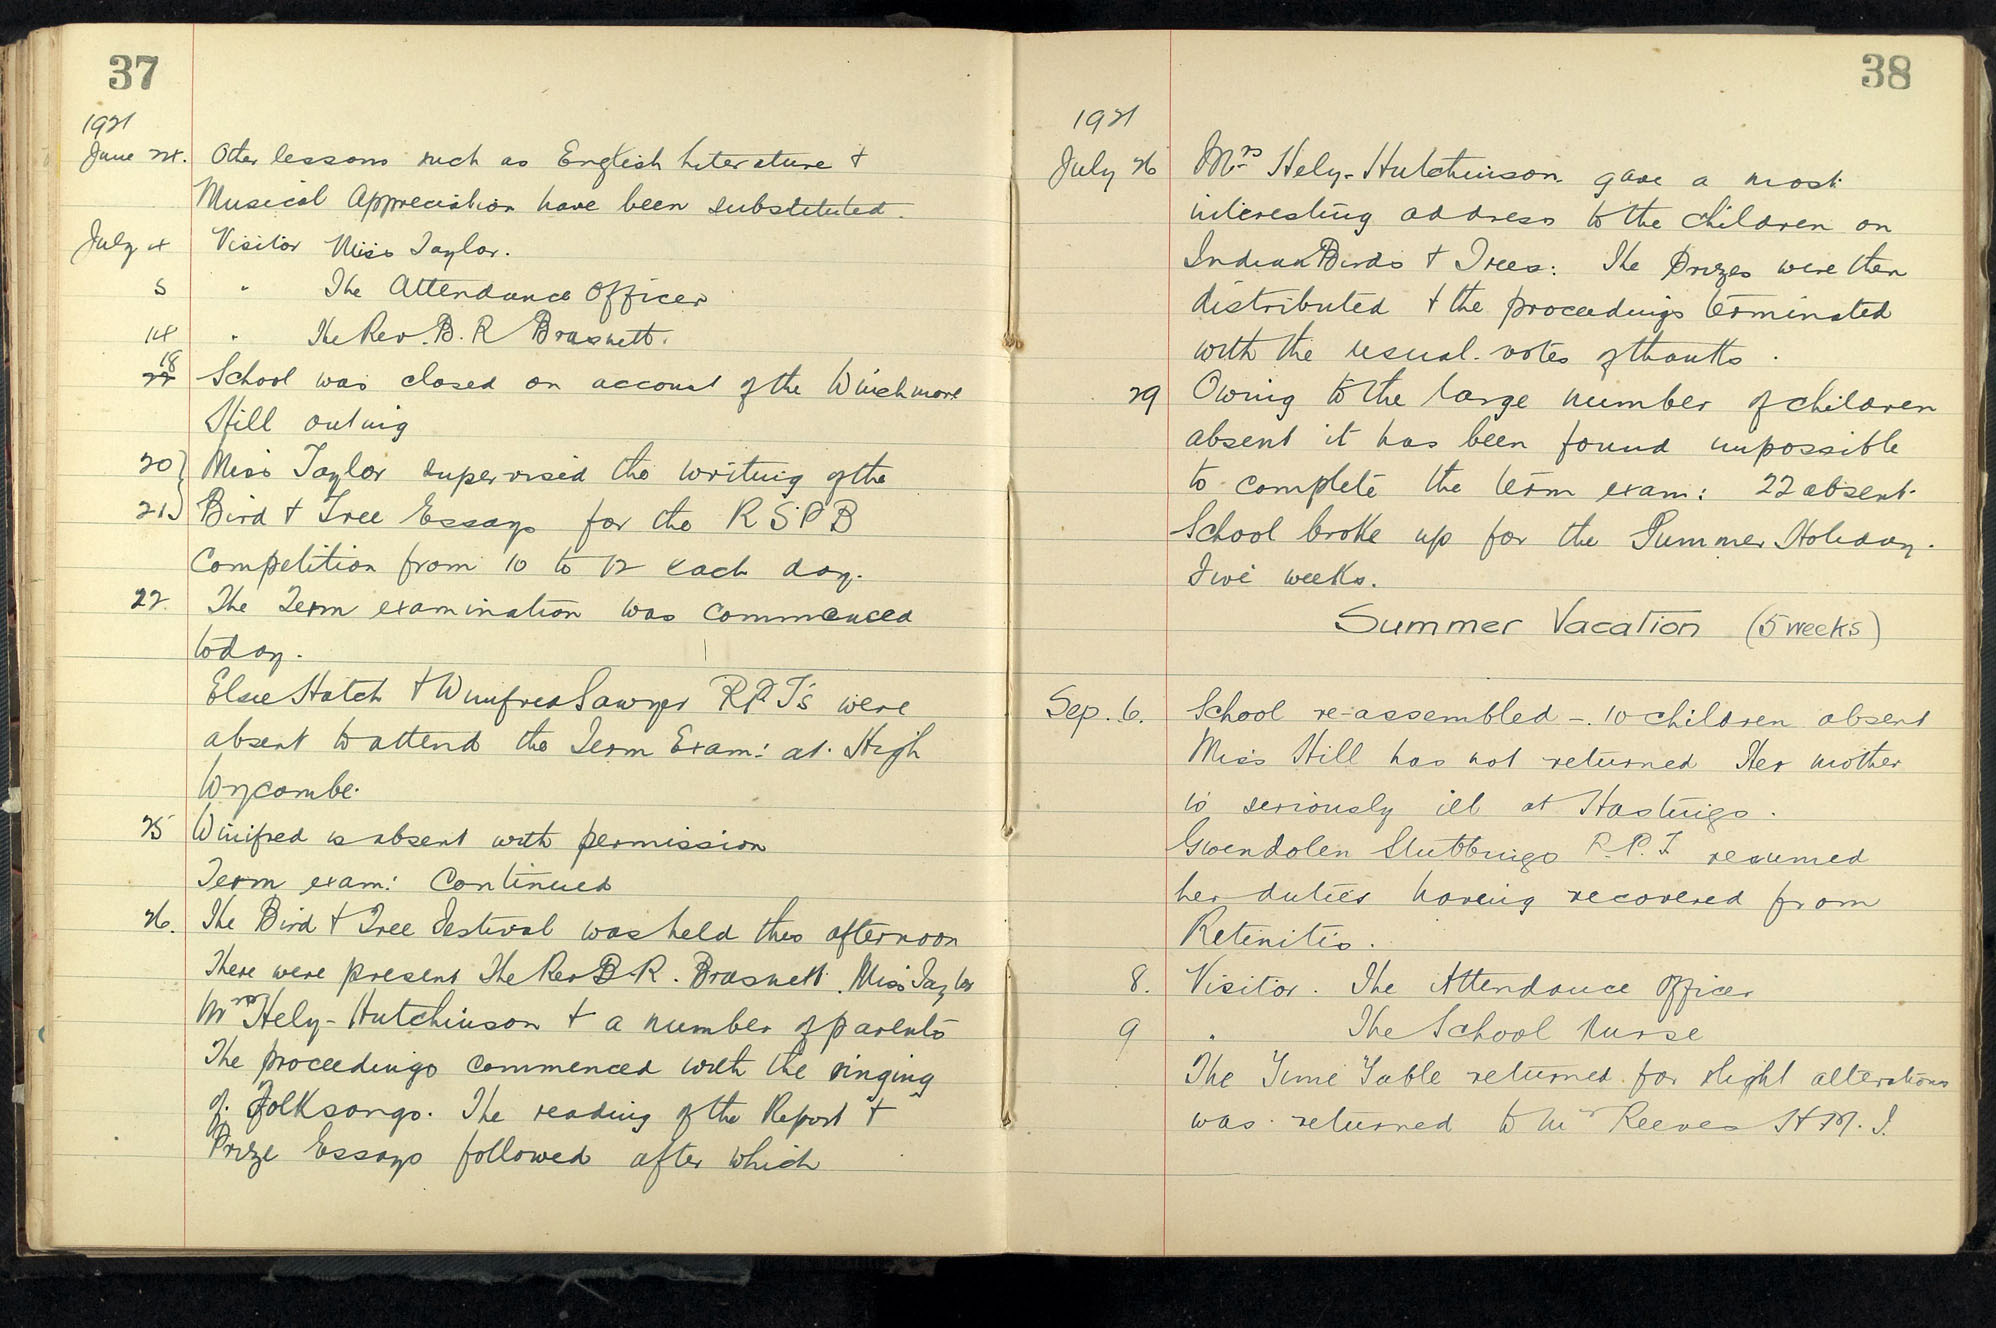 37
1921
June 24. Other lessons such as English Literature &
Musical Appreciation have been substituted.
July 4 Visitor Miss Taylor.
5 " The Attendance Officer
14 " The Rev. B. R Brasnett.
18
22 School was closed on account of the Winchmore
Hill outing
20} Miss Taylor supervised the writing of the
21} Bird & Tree Essays for the RSPB
Competition from 10 to 12 each day.
22. The Term examination was commenced
today.
Elsie Hatch & Winifred Sawyer R.P.T's were
absent to attend the Term Exam: at High
Wycombe.
25 Winifred is absent with permission
Term exam: Continued
26. The Bird & Tree Festival was held this afternoon
There were present The Rev B.R. Brasnett. Miss Taylor
Mrs Hely-Hutchinson & a number of parents
The proceedings commenced with the singing
of Folksongs. The reading of the Report &
Prize Essays followed after which
38
1921
July 26 Mrs Hely-Hutchinson gave a most
interesting address to the children on
Indian Birds & Trees: The Prizes were then
distributed & the proceedings terminated
with the usual votes of thanks.
29 Owing to the large number of children
absent it has been found impossible
to complete the term exam: 22 absent.
School broke up for the Summer Holiday.
Five weeks.
Summer Vacation (5 weeks)
Sep. 6. School re-assembled -. 10 children absent
Miss Hill has not returned Her mother
is seriously ill at Hastings.
Gwendolen Stubbings R.P.T. resumed
her duties having recovered from
Retinitis.
8. Visitor. The Attendance Officer
9 " The School Nurse
The Time Table returned for slight alterations
was returned to Mr Reeves H.M.I.